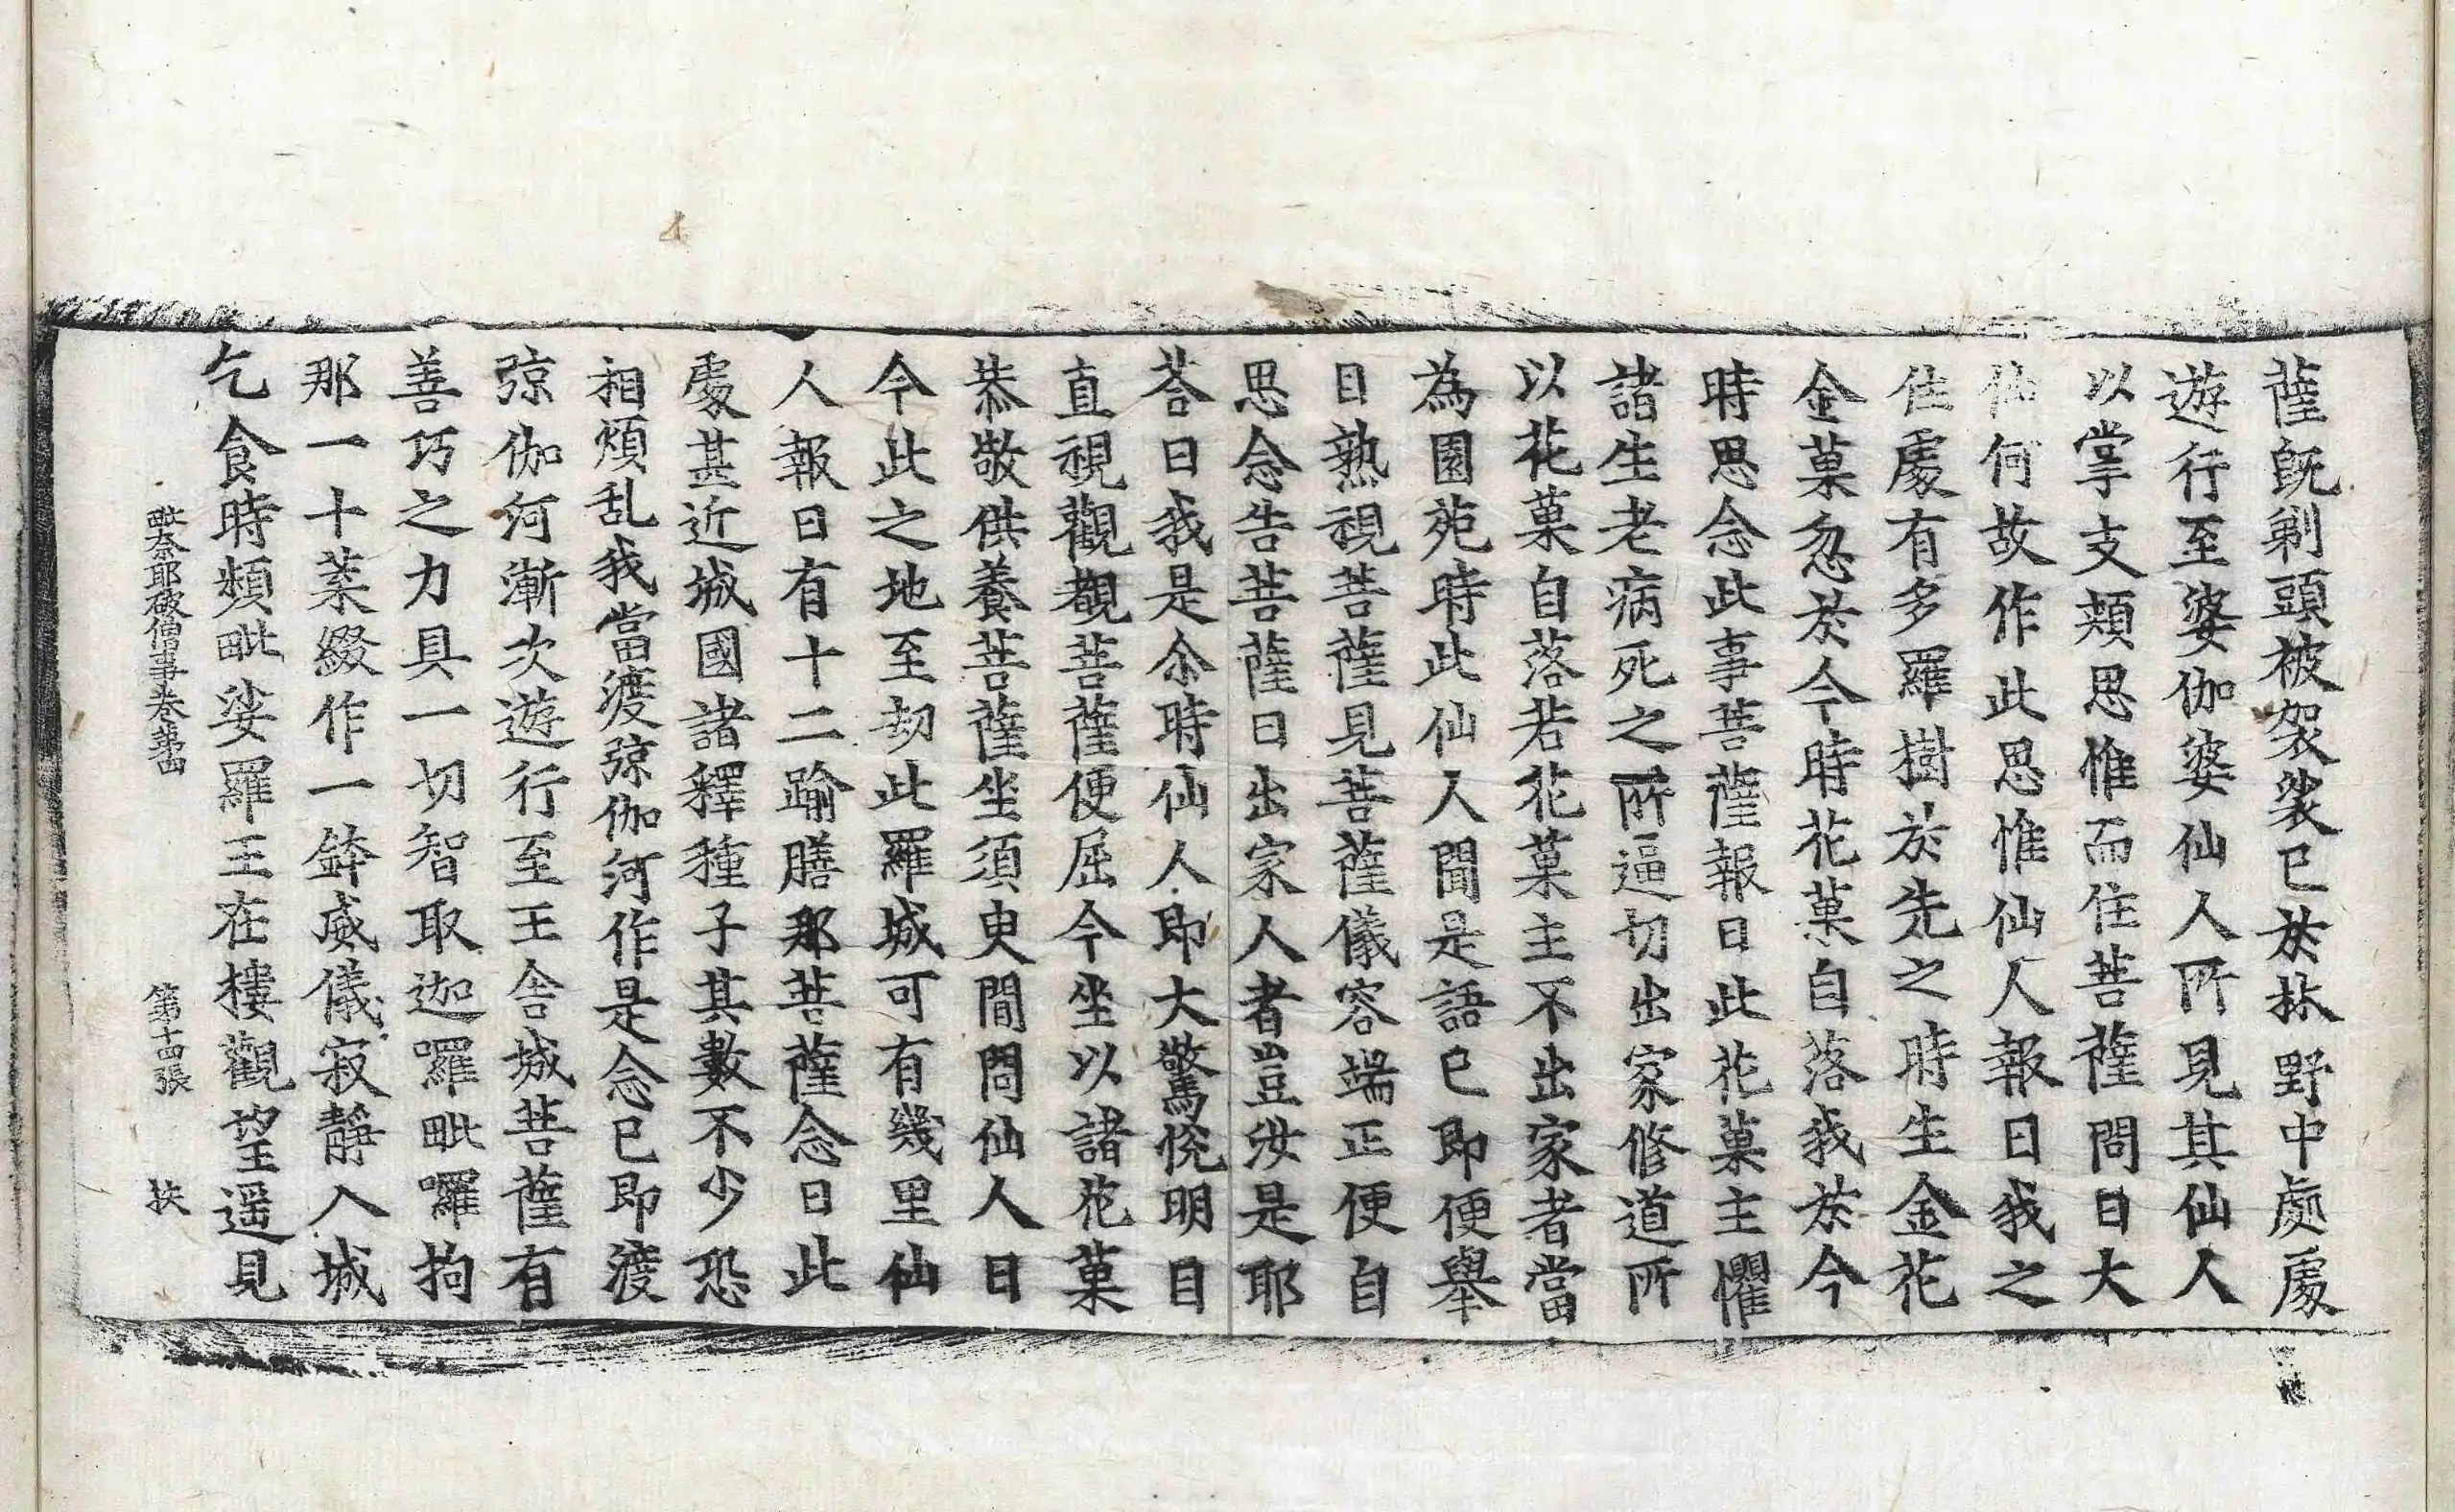 薩旣剃頭被袈裟已於林野中處處
遊行至婆伽婆仙人所見其仙人
以掌支頰思惟而住菩薩問曰大
仙何故作此思惟仙人報曰我之
住處有多羅樹於先之時生金花
金菓忽於今時花菓自落我於今
時思念此事菩薩報曰此花菓主懼
諸生老病死之所逼切出家修道所
以花菓自落若花菓主不出家者當
為園苑時此仙人聞是語已即便舉
目熟視菩薩見菩薩儀容端正便自
思念告菩薩曰出家人者豈汝是耶
荅曰我是尒時仙人即大驚恱明目
直視觀覩菩薩便屈令坐以諸花菓
恭敬供養菩薩坐須臾間問仙人曰
今此之地至劫此羅城可有幾里仙
人報曰有十二踰膳那菩薩念曰此
處甚近城國諸釋種子其數不少恐
相煩乱我當渡弶伽河作是念已即渡
弶伽河漸次遊行至王舍城菩薩有
善巧之力具一切智取迦囉毗囉拘
那一十葉綴作一鉢威儀寂靜入城
乞食時頻毗娑羅王在樓觀望遥見
毗奈耶破僧事卷第四 第十四張 扶